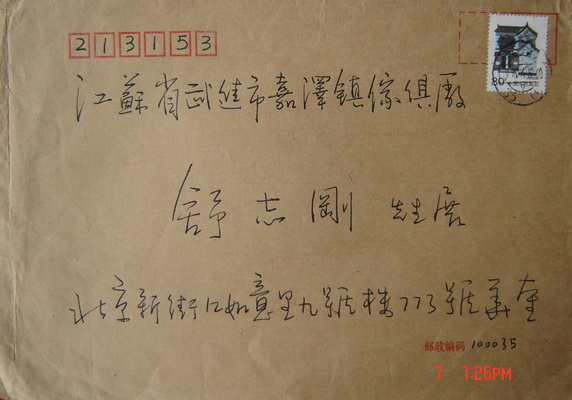 213153
80
江蘇省武進市嘉澤鎮傢俱廠
舒志剛 先生展
北京新街口如意里九號樓773號義奎
邮政编码 100035
7 1:26PM